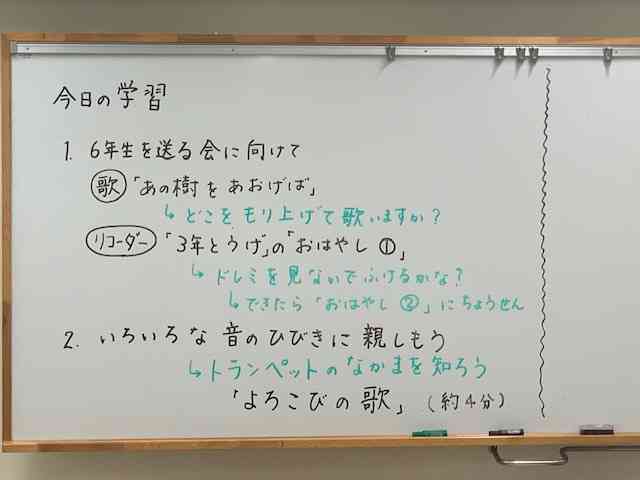 今日の学習
1. 6年生を送る会に向けて
歌 「あの樹をあおげば」
↳ どこをもり上げて歌いますか？
リコーダー 「3年とうげ」の「おはやし①」
↳ ドレミを見ないでふけるかな？
↳ できたら「おはやし②」にちょうせん
2. いろいろな音のひびきに親しもう
↳ トランペットのなかまを知ろう
「よろこびの歌」（約4分）